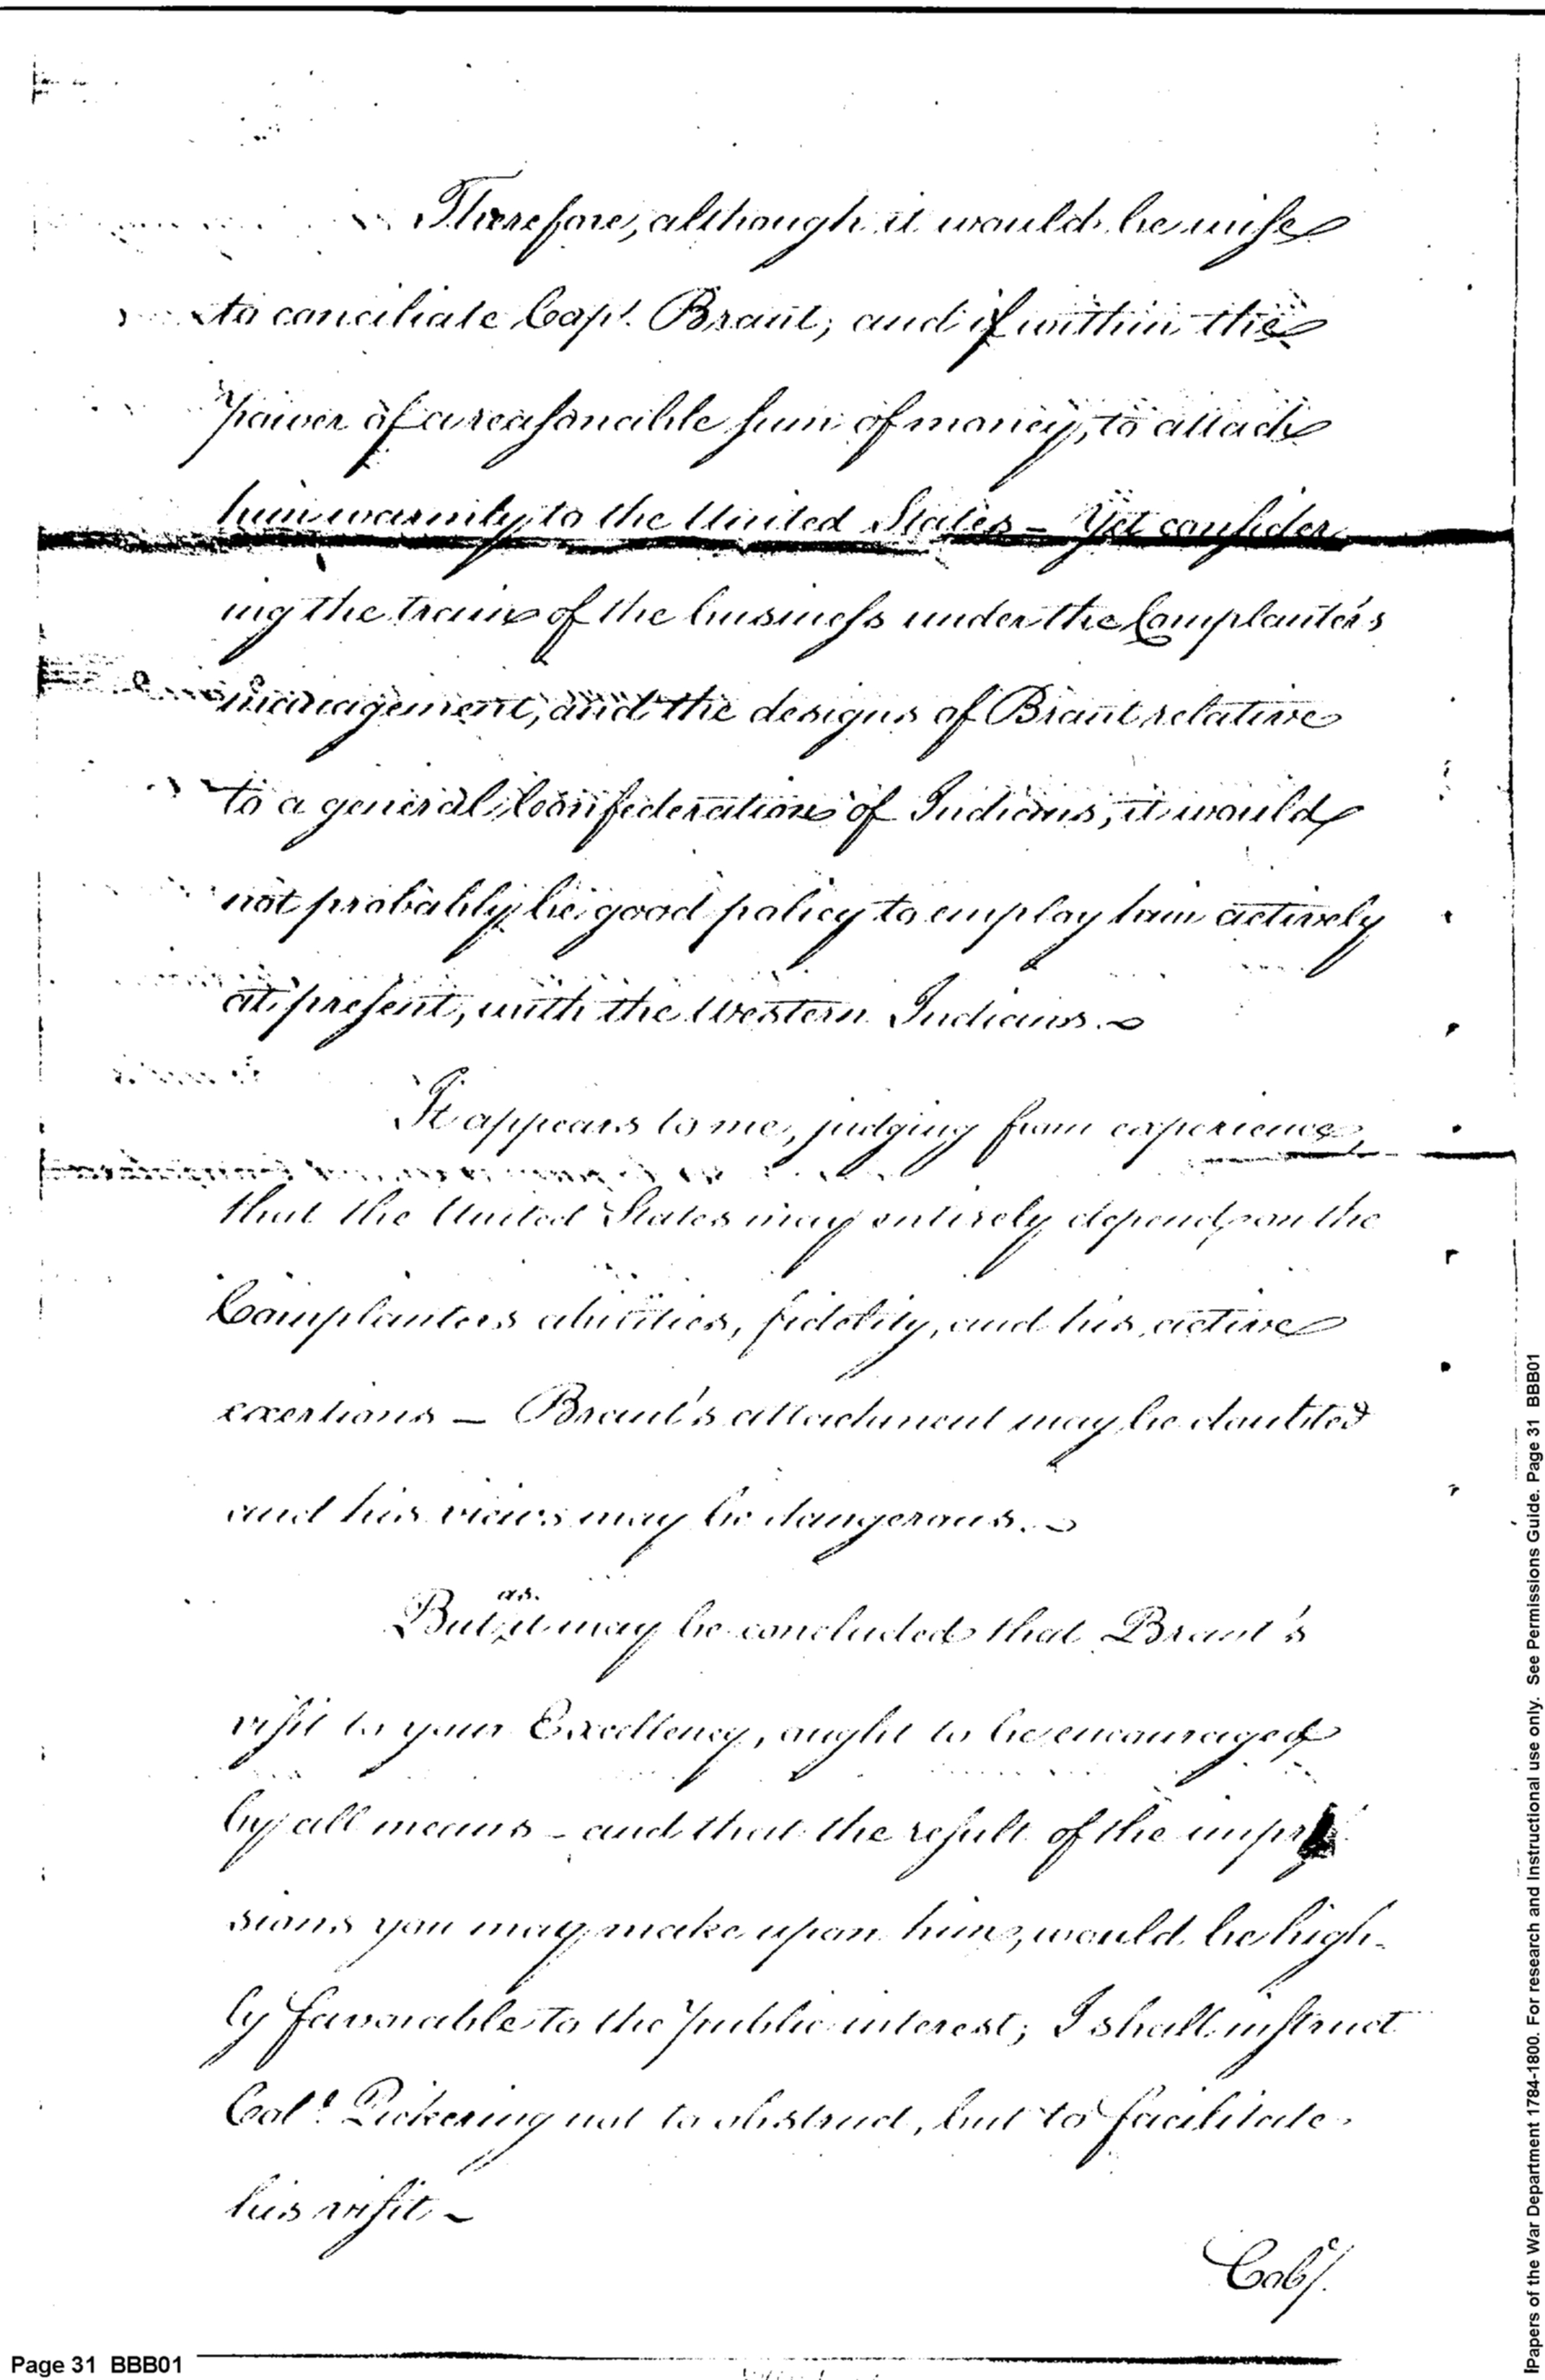 Therefore, although it would be wise
to conciliate Capt. Brant, and if within the
power of a reasonable sum of money, to attach
him warmly to the United States – Yet consider
ing the train of the business under the Cornplanter's
management, and the designs of Brant relative
to a general Confederation of Indians, it would
not probably be good policy to employ him actively
at present, with the Western Indians.
It appears to me, judging from experience,
that the United States may entirely depend, on the
Cornplanters abilities, fidelity, and his active
exertions – Brant's attachment may be doubted
and his views may be dangerous.
as
But it may be concluded that Brant's
visit to your Excellency, ought to be encouraged
by all means – and that the result of the impres
sions you may make upon him, would be high-
ly favorable to the public interest; I shall instruct
Colo. Pickering not to obstruct, but to facilitate
his visit –
Colo.
Page 31 BBB01
Papers of the War Department 1784-1800. For research and Instructional use only. See Permissions Guide. Page 31 BBB01